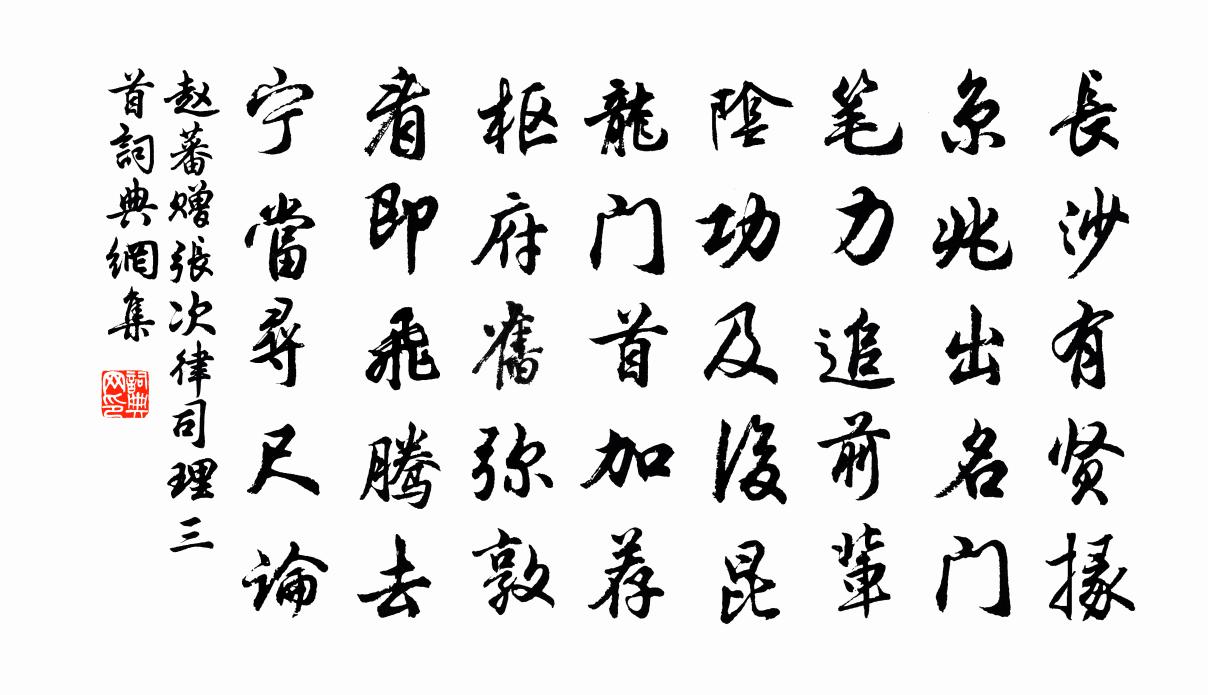 長沙有贤掾
京兆出名門
笔力追前輩
陰功及後昆
龍门首加荐
枢府舊弥敦
看即飛腾去
宁當尋尺論
赵蕃赠張次律司理三
首詞典網集
詞典
网印